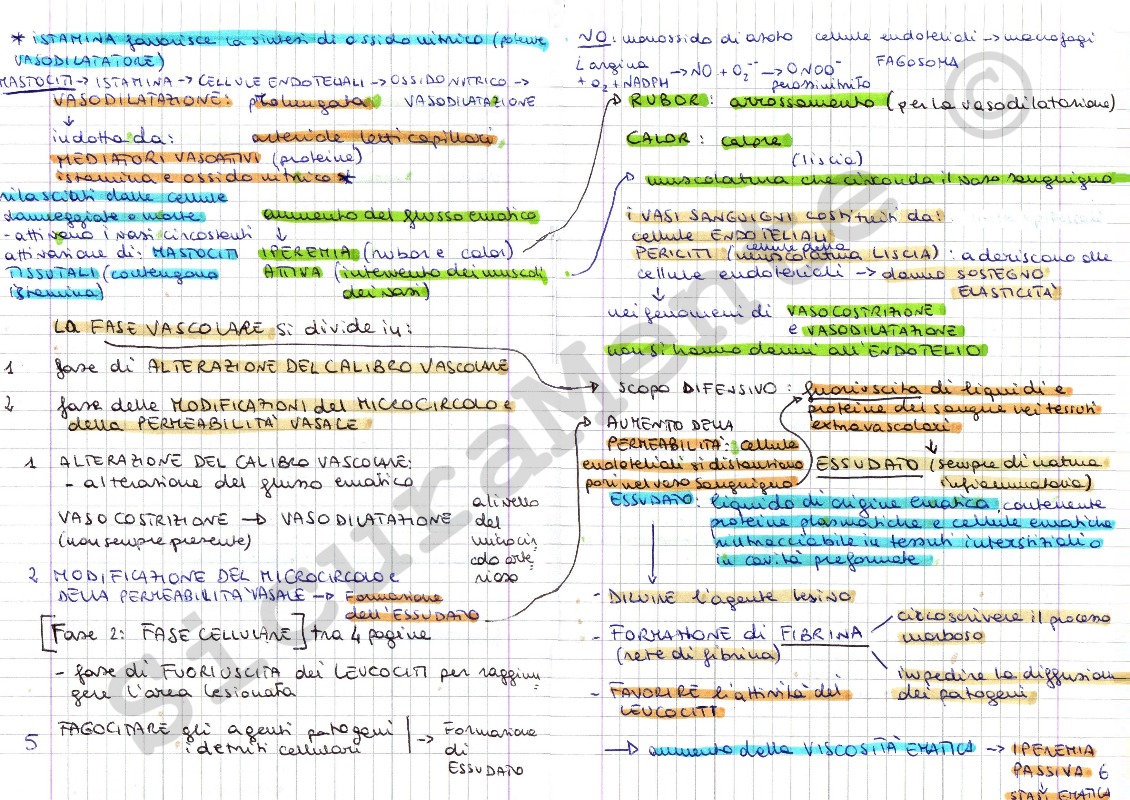 * ISTAMINA favorisce la sintesi di ossido nitrico (potente
VASODILATATORE)
MASTOCITI → ISTAMINA → CELLULE ENDOTELIALI → OSSIDO NITRICO →
VASODILATAZIONE: prolungata VASODILATAZIONE
↓
indotta da: arteriole letti capillari
MEDIATORI VASOATTIVI (proteine)
istamina e ossido nitrico *
rilasciati dalle cellule
danneggiate o morte aumento del flusso ematico
- attivano i vasi circostanti ↓
attivazione di: MASTOCITI IPEREMIA (rubor e calor)
TISSUTALI (contengono ATTIVA (intervento dei muscoli
istamina) dei vasi)
LA FASE VASCOLARE si divide in:
1 fase di ALTERAZIONE DEL CALIBRO VASCOLARE
2 fase delle MODIFICAZIONI del MICROCIRCOLO e
della PERMEABILITA' VASALE
1 ALTERAZIONE DEL CALIBRO VASCOLARE:
- alterazione del flusso ematico
VASOCOSTRIZIONE → VASODILATAZIONE
(non sempre presente)
a livello
del
microcir
colo arte
rioso
2 MODIFICAZIONE DEL MICROCIRCOLO e
DELLA PERMEABILITA' VASALE → Formazione
dell'ESSUDATO
[Fase 2: FASE CELLULARE] tra 4 pagine
- fase di FUORIUSCITA dei LEUCOCITI per raggiun
gere l'area lesionata
FAGOCITARE gli agenti patogeni
i detriti cellulari
→ Formazione
di
ESSUDATO
5
NO: monossido di azoto cellule endoteliali → macrofagi
L argina → NO + O2- → ONOO- FAGOSOMA
+ O2 + NADPH perossinitrito
RUBOR: arrossamento (per la vasodilatazione)
CALOR: calore
(liscia)
muscolatura che circonda il vaso sanguigno
i VASI SANGUIGNI costituiti da:
cellule ENDOTELIALI
PERICITI (cellule della muscolatura LISCIA): aderiscono alle
cellule endoteliali → danno SOSTEGNO
ELASTICITÀ
↓
nei fenomeni di VASOCOSTRIZIONE
e VASODILATAZIONE
non si hanno danni all'ENDOTELIO
→ SCOPO DIFENSIVO: fuoriuscita di liquidi e
proteine del sangue nei tessuti
extravascolari
↓
AUMENTO DELLA
PERMEABILITÀ: cellule
endoteliali si distanziano
pori nel vaso sanguigno
ESSUDATO (sempre di natura
infiammatoria)
ESSUDATO: liquido di origine ematica, contenente
proteine plasmatiche e cellule ematiche
rintracciabile in tessuti interstiziali o
in cavità preformate
- DILUIRE l'agente lesivo
- FORMAZIONE di FIBRINA
(rete di fibrina)
circoscrivere il processo
morboso
impedire la diffusione
dei patogeni
- FAVORIRE l'attività dei
LEUCOCITI
→ aumento della VISCOSITÀ EMATICA → IPEREMIA
PASSIVA 6
STASI EMATICA
Si.curaMente ©